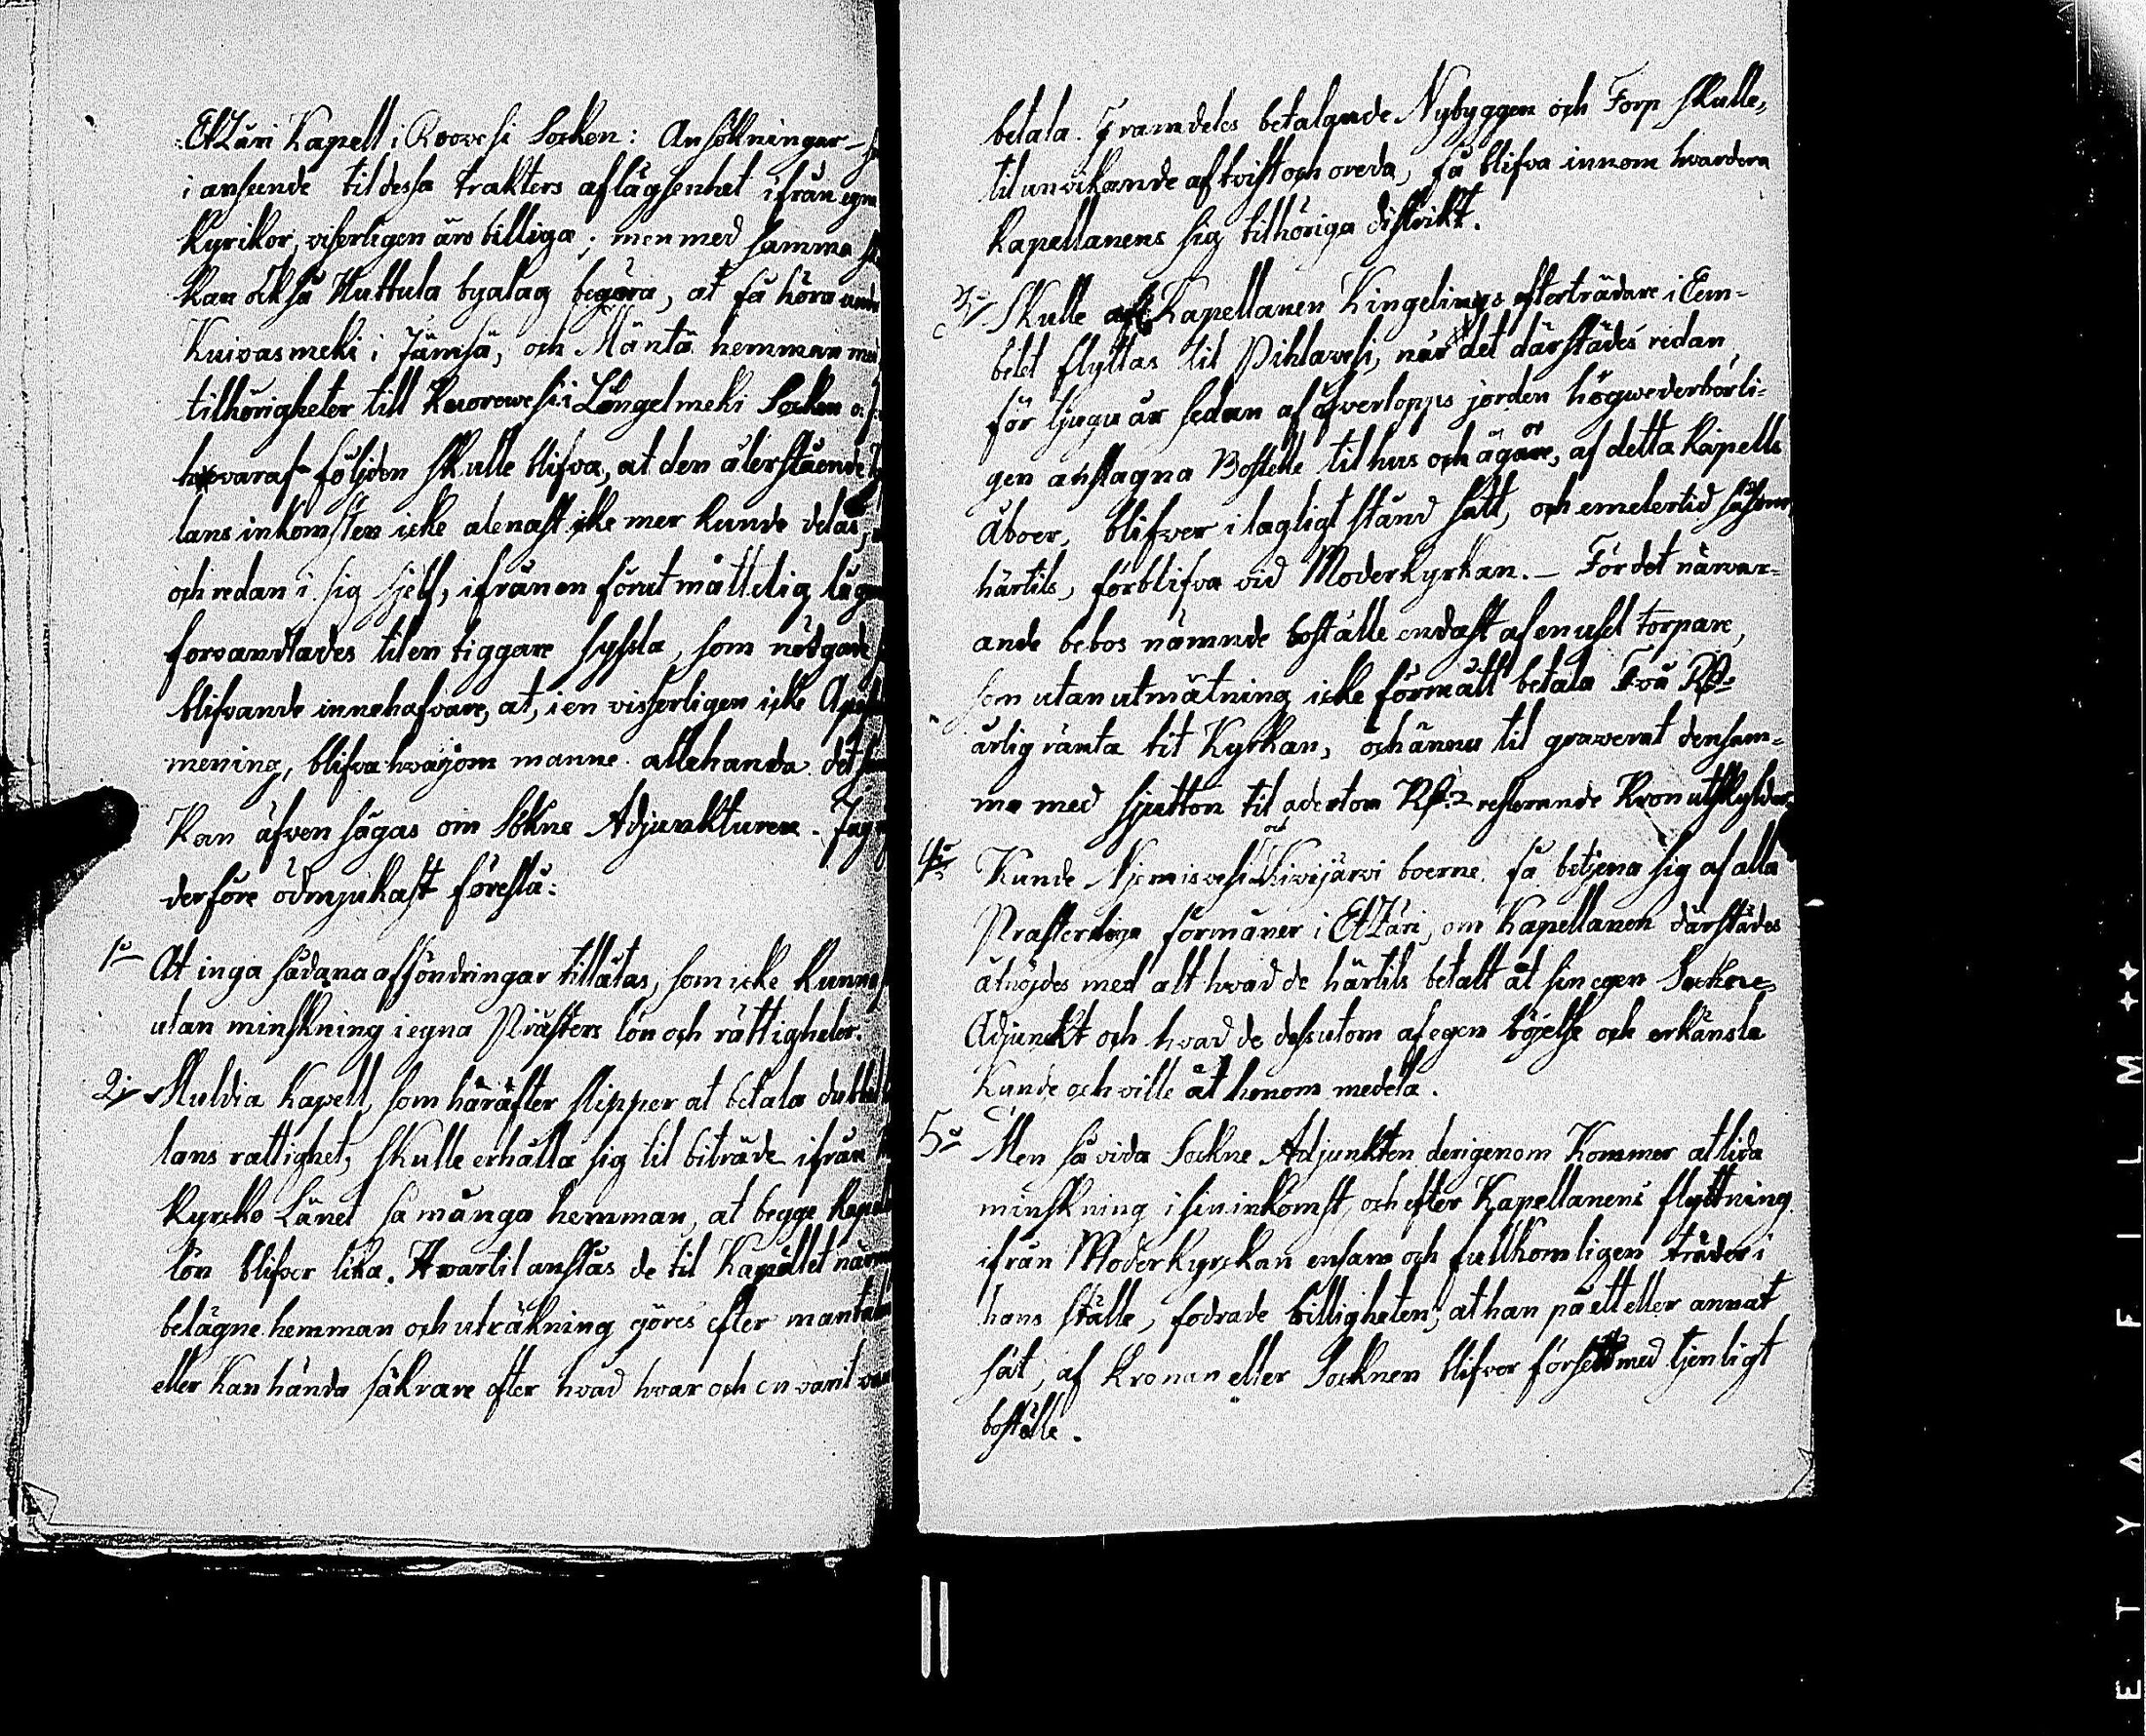 EtZäri Kapell i Roovesi Socken: Ansökningar
i anseende til dessa trakters aflägsenhet ifrån egna
Kyrikor, visserligen äro billiga; men med samma
kan också Huttula byalag begära, at få höra under
Kuivasmeki i Jämsä, och Mänttä hemman med
tilhörigheter till Kuorewesi i Längelmeki Socken
hvaraf följden skulle blifva, at den återstående
lans inkomsten icke alenast icke mer kunde delas,
och redan i sig sjelf, ifrån en förut måttelig
forvandlades til en tiggare syssla, som nödgade
blifvande innehafvare, at, i en visserligen icke
mening, blifva hvarjom manne allehanda. det
Kan äfven sägas om Sökne Adjunkturen. Jag
derföre ödmjukast föreslå:
1o At inga sådana afsöndringar tillåtas, som icke kunna
utan minskning i egna Prästers lön och rättigheter.
2o Muldia Kapell, som häräfter slipper at betala dubbel
lans rattighet, skulle erhålla sig til biträde ifrån
Kyrcko Länet så många hemman, at begge
lön blifver lika. Hvartil anslås de til Kapellet närm
belägne hemman och uträkning göres efter mantal
eller Kan hända säkrare efter hvad hvar och en varit van
betala. Framdeles betalande Nybyggen och Torp skulle,
til undvikande af tvist och oreda, få blifva innom hvardera
Kapellanens sig tilhöriga district.
3o Skulle Kapellanen Kingelins efterträdare i Em-
betet flyttas til Pihlavesi, när det därstädes redan
för tjugu år sedan af öfverlopps jorden högwederbörli-
gen anslagna Bostelle til hus och ägor, af detta Kapells
Åboer, blifver i lagligt stånd satt, och emedlertid såsom
härtils, förblifva vid Moderkyrkan. – För det närvar-
ande bebos nämnde boställe endast af en usel torpare,
som utan utmätning icke förmått betala Två Rd
årlig ränta til Kyrkan, och ännu til graverat densam-
ma med sjutton til aderton Rd resterande Kronutskylder.
4o Kunde Njemisvesi och Kivijärvi boerne få betjena sig af alla
Prasterliga förmåner i EtZäri, om Kapellanen därstädes
åtnöjdes med alt hvad de härtils betalt åt sin egen Sockne
Adjunkt och hvad de dessutom af egen böjelse och erkänsla
Kunde och ville åt honom medela.
5o Men så vida Sockne Adjunkten derigenom Kommer at lida
minskning i sin inkomst, och efter Kapellanens flyttning
ifrån Moderkyrckan ensam och fullkomligen träder i
hans ställe, fodrade billigheten, at han på ett eller annat
sät, af Kronan eller Socknen blifver försett med tjenligt
boställe.
ETYAFILM